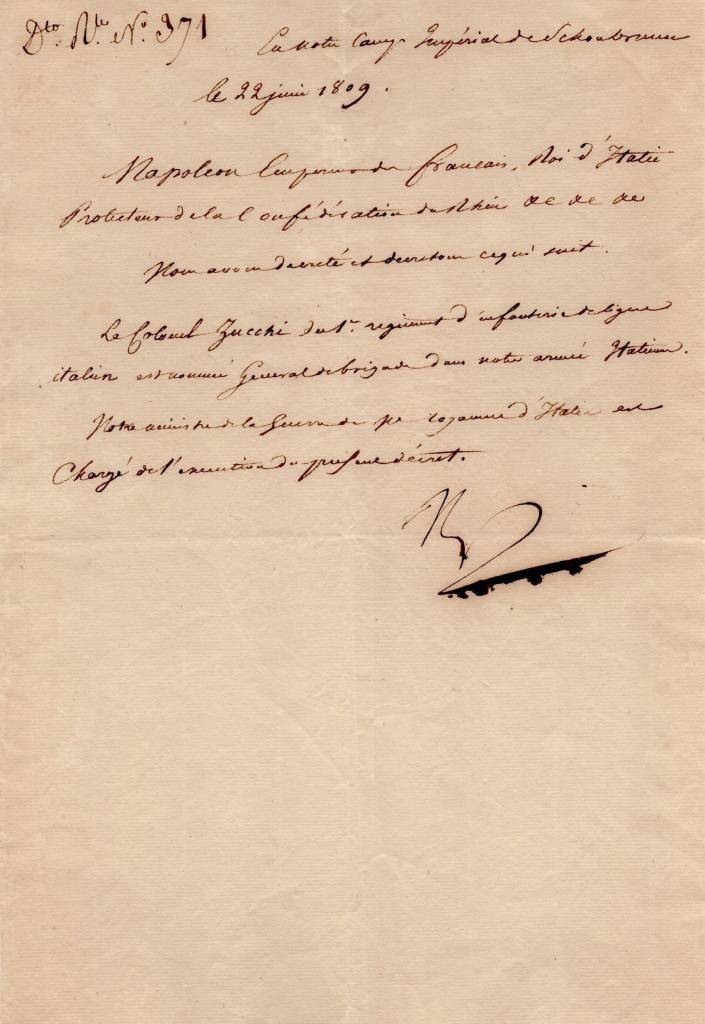 Dto. Rle. No. 371
En notre Camp Impérial de Schonbrunn
le 22 juin 1809.
Napoleon Empereur des français, Roi d'Italie
Protecteur de la Confédération du Rhin &c &c &c
Nous avons decreté et decretons ce qui suit.
Le Colonel Zucchi du 1r. regiment d'infanterie de ligne
italien est nommé Général de brigade dans notre armée Italienne.
Notre ministre de la Guerre de Ne royaume d'Italie est
Chargé de l'execution du présent décret.
N